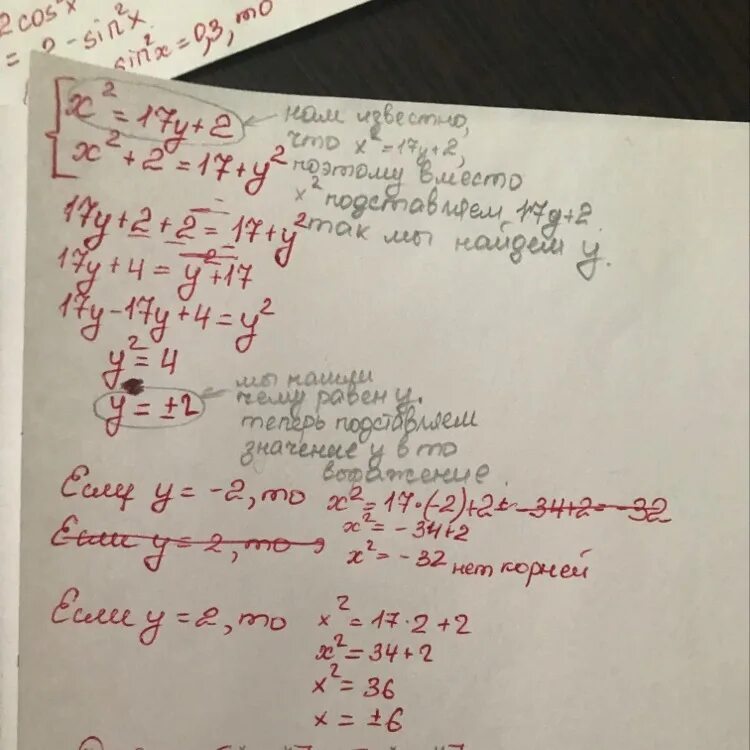 2cos²x
= 2 - sin²x
sin²x = 0,3, то
x² = 17y+2
x² + 2 = 17 + y²
нам известно,
что x² = 17y+2,
поэтому вместо
x² подставляем 17y+2
так мы найдем y.
17y + 2 + 2 = 17 + y²
17y + 4 = y² + 17
17y - 17y + 4 = y²
y² = 4
y = ±2
мы нашли
чему равен y.
теперь подставляем
значение y в то
выражение.
Если y = -2, то x² = 17·(-2)+2 = -34+2 = -32
x² = -34+2
Если y = 2, то
x² = -32 нет корней
Если y = 2, то x² = 17·2+2
x² = 34+2
x² = 36
x = ±6